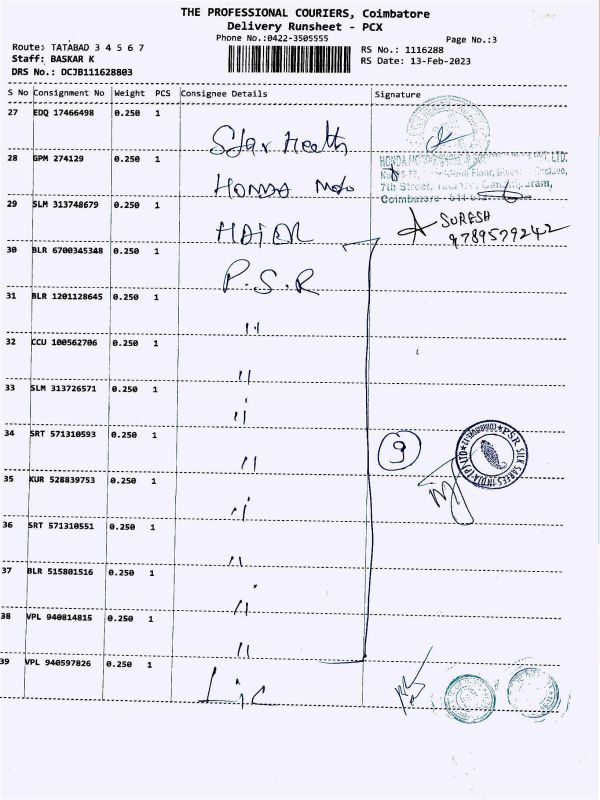 THE PROFESSIONAL COURIERS, Coimbatore
Delivery Runsheet - PCX
Phone No.:0422-3505555
Page No.:3
Route: TATABAD 3 4 5 6 7
Staff: BASKAR K
DRS No.: DCJB111628803
RS No.: 1116288
RS Date: 13-Feb-2023
S No Consignment No Weight PCS Consignee Details Signature
27 EDQ 17466498 0.250 1 Star Health
28 GPM 274129 0.250 1 HONDA Moto
HONDA
7th Street,
Coimbatore
29 SLM 313748679 0.250 1 HAIER
SURESH
9789579242
30 BLR 6700345348 0.250 1 P.S.R
31 BLR 1201128645 0.250 1 "
32 CCU 100562706 0.250 1 "
33 SLM 313726571 0.250 1 "
34 SRT 571310593 0.250 1 "
9
PSR SILK SAREES INDIA (P) LTD COIMBATORE-12
35 KUR 528839753 0.250 1 "
36 SRT 571310551 0.250 1 "
37 BLR 515801516 0.250 1 "
38 VPL 940814815 0.250 1 "
39 VPL 940597826 0.250 1 Lic